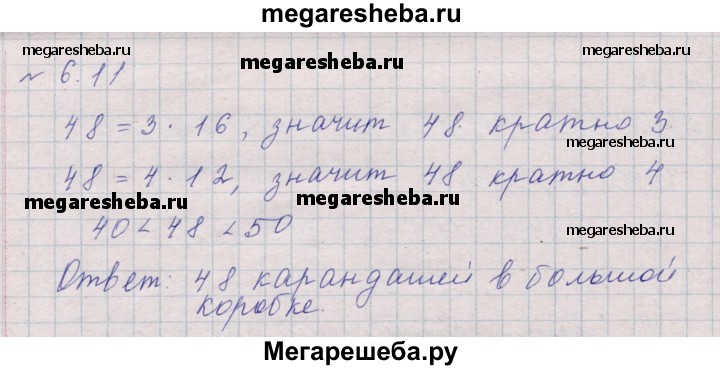 megaresheba.ru
megaresheba.ru
megaresheba.ru
megaresheba.ru
№ 6.11
48 = 3 · 16, значит 48 кратно 3
megaresheba.ru
48 = 4 · 12, значит 48 кратно 4
megaresheba.ru
megaresheba.ru
40 < 48 < 50
megaresheba.ru
Ответ: 48 карандашей в большой
коробке.
Мегарешеба.ру